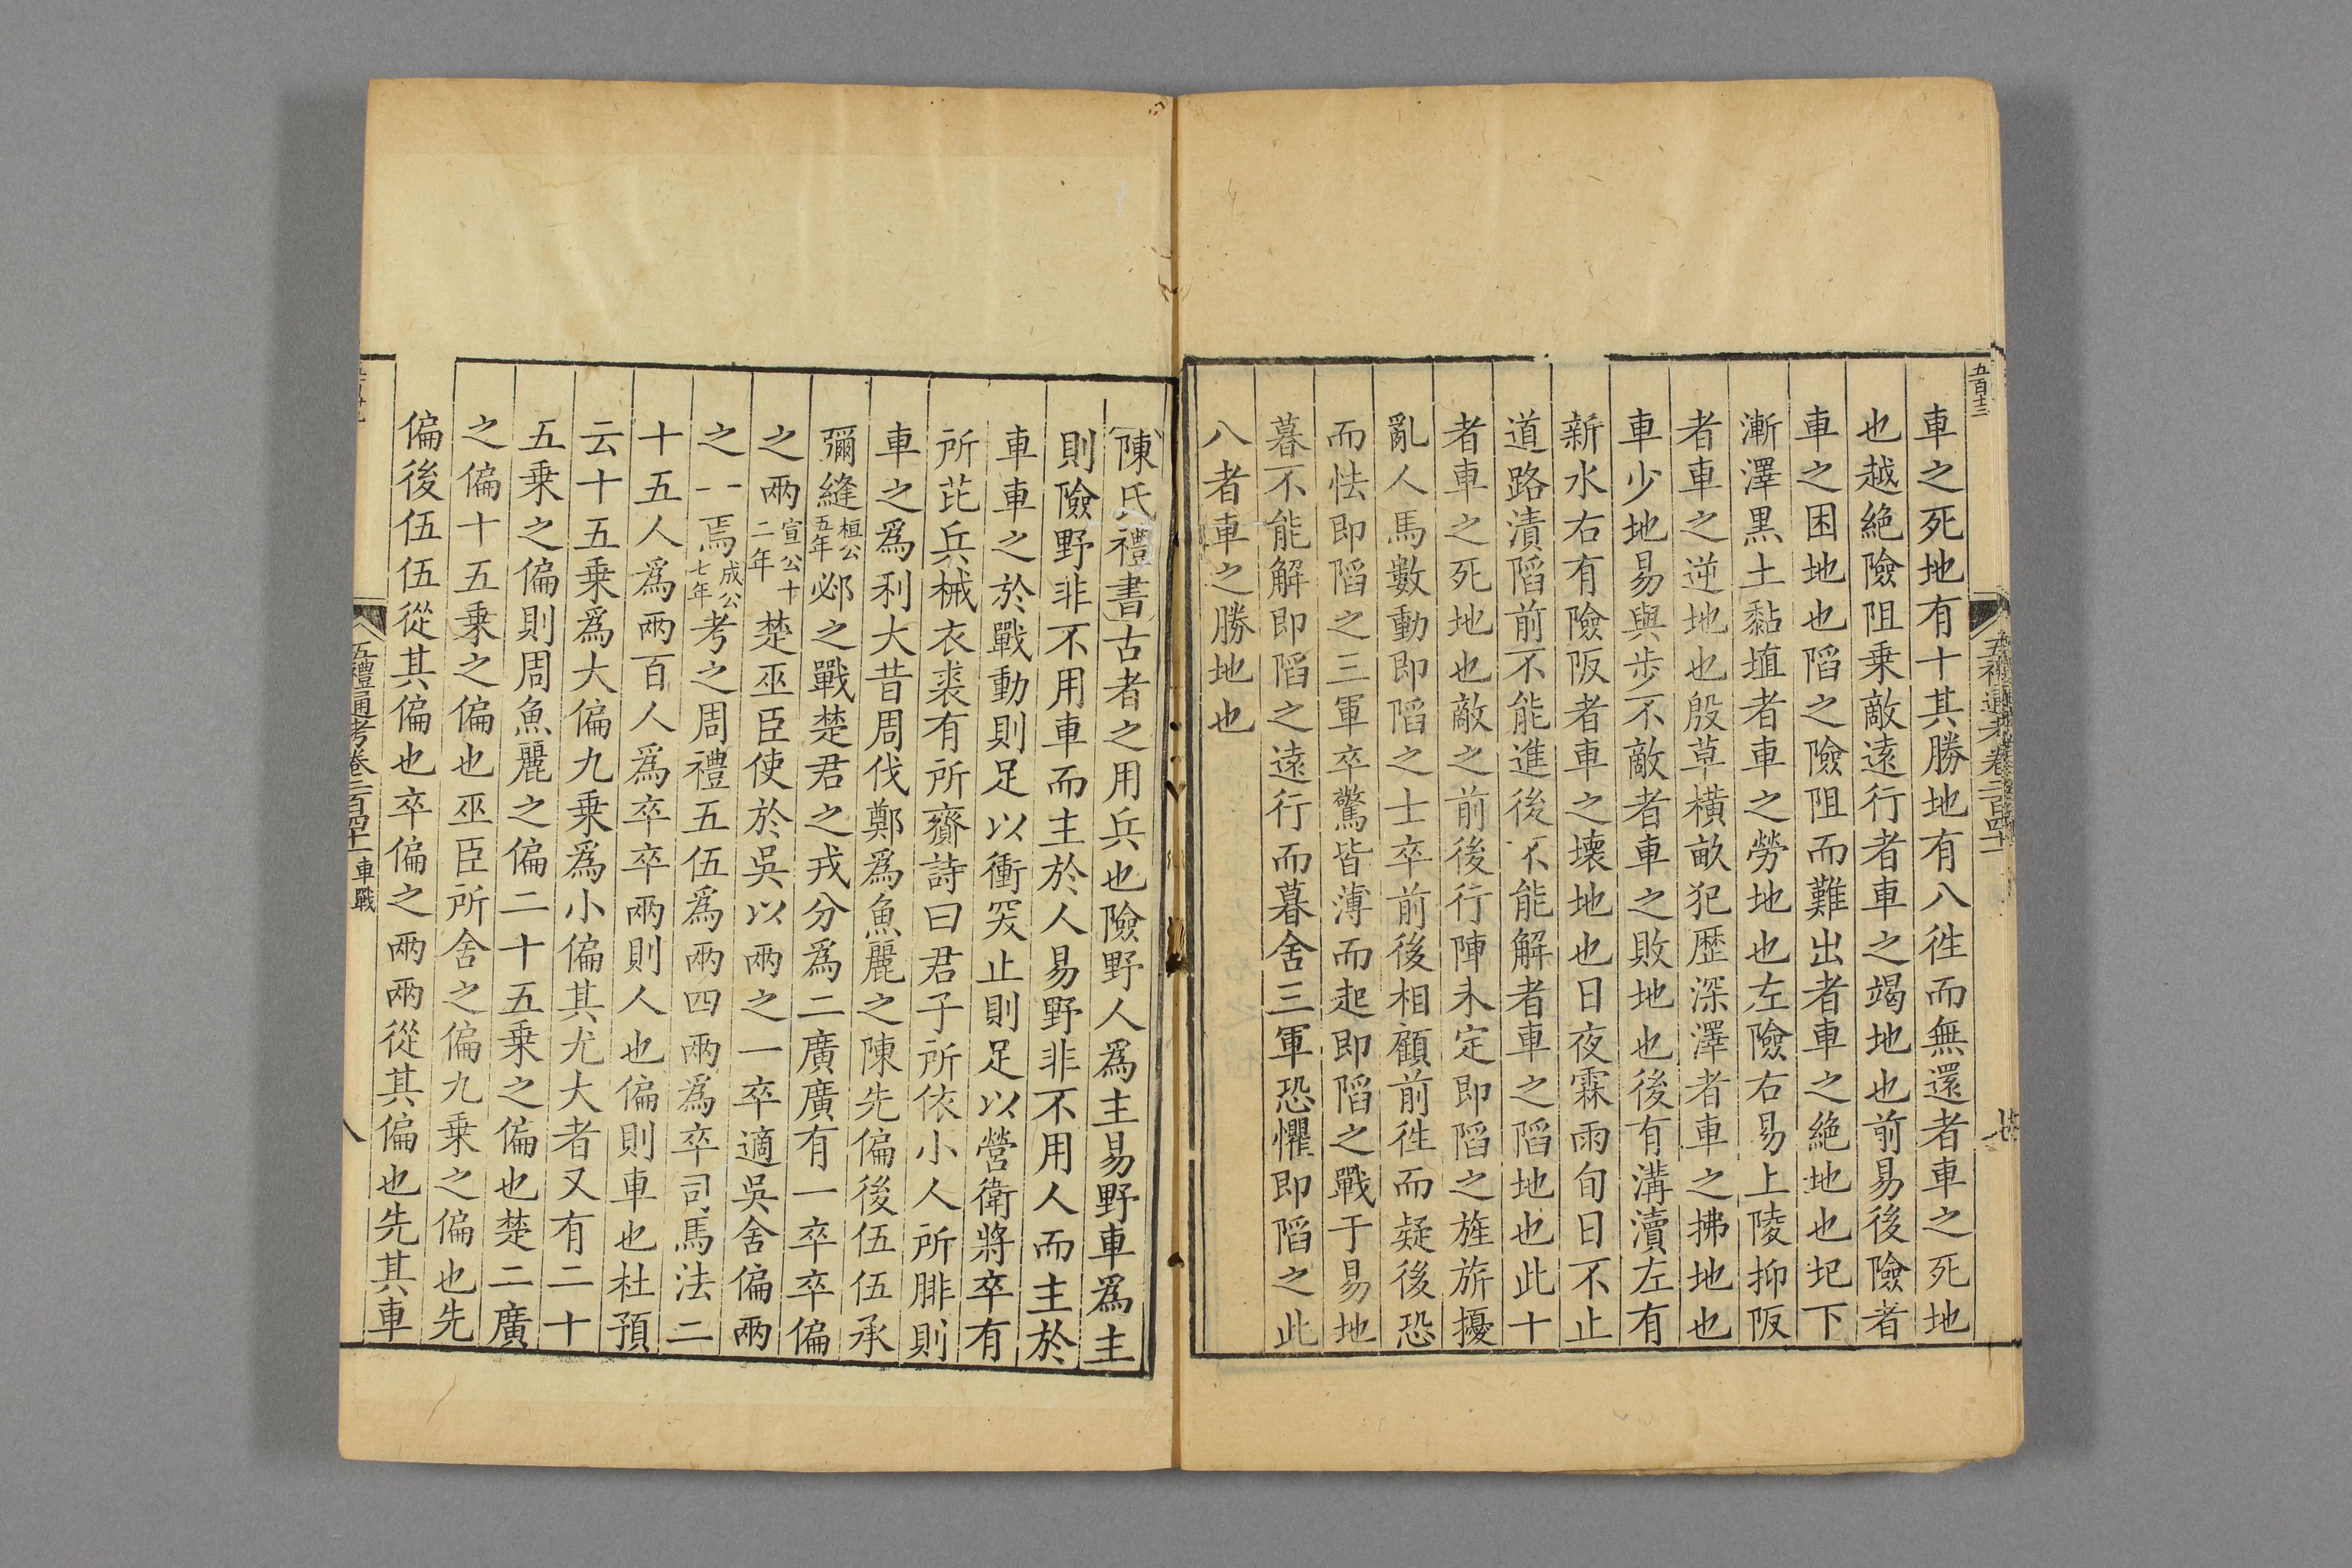 五百十三
五禮通考卷二百四十一
七
車之死地有十其勝地有八徃而無還者車之死地
也越絶險阻乗敵逺行者車之竭地也前易後險者
車之困地也䧟之險阻而難出者車之絶地也圯下
漸澤黒土黏埴者車之勞地也左險右易上陵抑阪
者車之逆地也殷草横畝犯歴深澤者車之拂地也
車少地易與歩不敵者車之敗地也後有溝瀆左有
新水右有險阪者車之壊地也日夜霖雨旬日不止
道路漬䧟前不能進後不能解者車之䧟地也此十
者車之死地也敵之前後行陣未定即䧟之旌旂擾
亂人馬數動即䧟之士卒前後相顧前徃而疑後恐
而怯即䧟之三軍卒驚皆薄而起即䧟之戰于易地
暮不能解即䧟之逺行而暮舍三軍恐懼即䧟之此
八者車之勝地也
陳氏禮書古者之用兵也險野人爲主易野車爲主
則險野非不用車而主於人易野非不用人而主於
車車之於戰動則足以衝突止則足以營衛將卒有
所芘兵械衣裘有所齎詩曰君子所依小人所腓則
車之爲利大昔周伐鄭爲魚麗之陳先偏後伍伍承
彌縫桓公五年邲之戰楚君之戎分爲二廣廣有一卒卒偏
之兩宣公十二年楚巫臣使於吳以兩之一卒適吳舍偏兩
之一焉成公七年考之周禮五伍爲兩四兩爲卒司馬法二
十五人爲兩百人爲卒卒兩則人也偏則車也杜預
云十五乗爲大偏九乗爲小偏其尤大者又有二十
五乗之偏則周魚麗之偏二十五乗之偏也楚二廣
之偏十五乗之偏也巫臣所舍之偏九乗之偏也先
偏後伍伍從其偏也卒偏之兩兩從其偏也先其車
五禮通考卷二百四十一 車戰
八